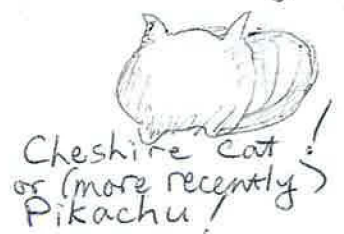 Cheshire cat!
or (more recently)
Pikachu!